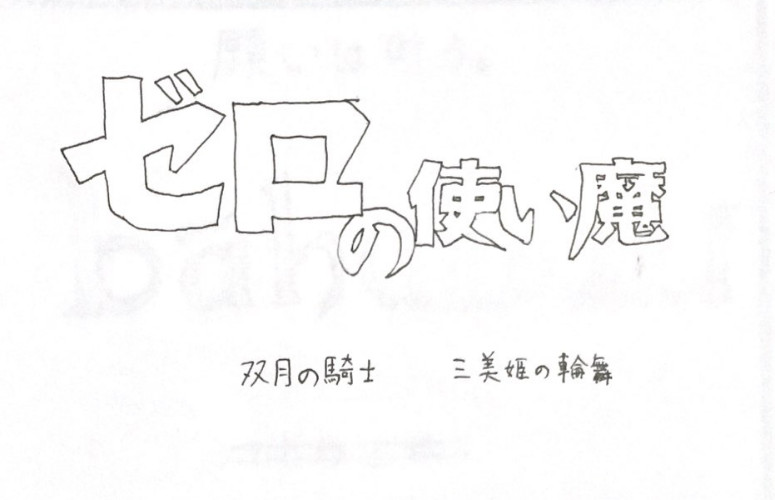 ゼロの使い魔
双月の騎士 三美姫の輪舞